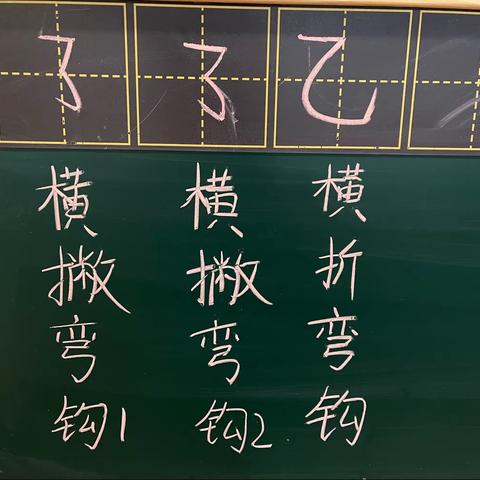 ㇌ ㇌ 乙
横撇弯钩1
横撇弯钩2
横折弯钩